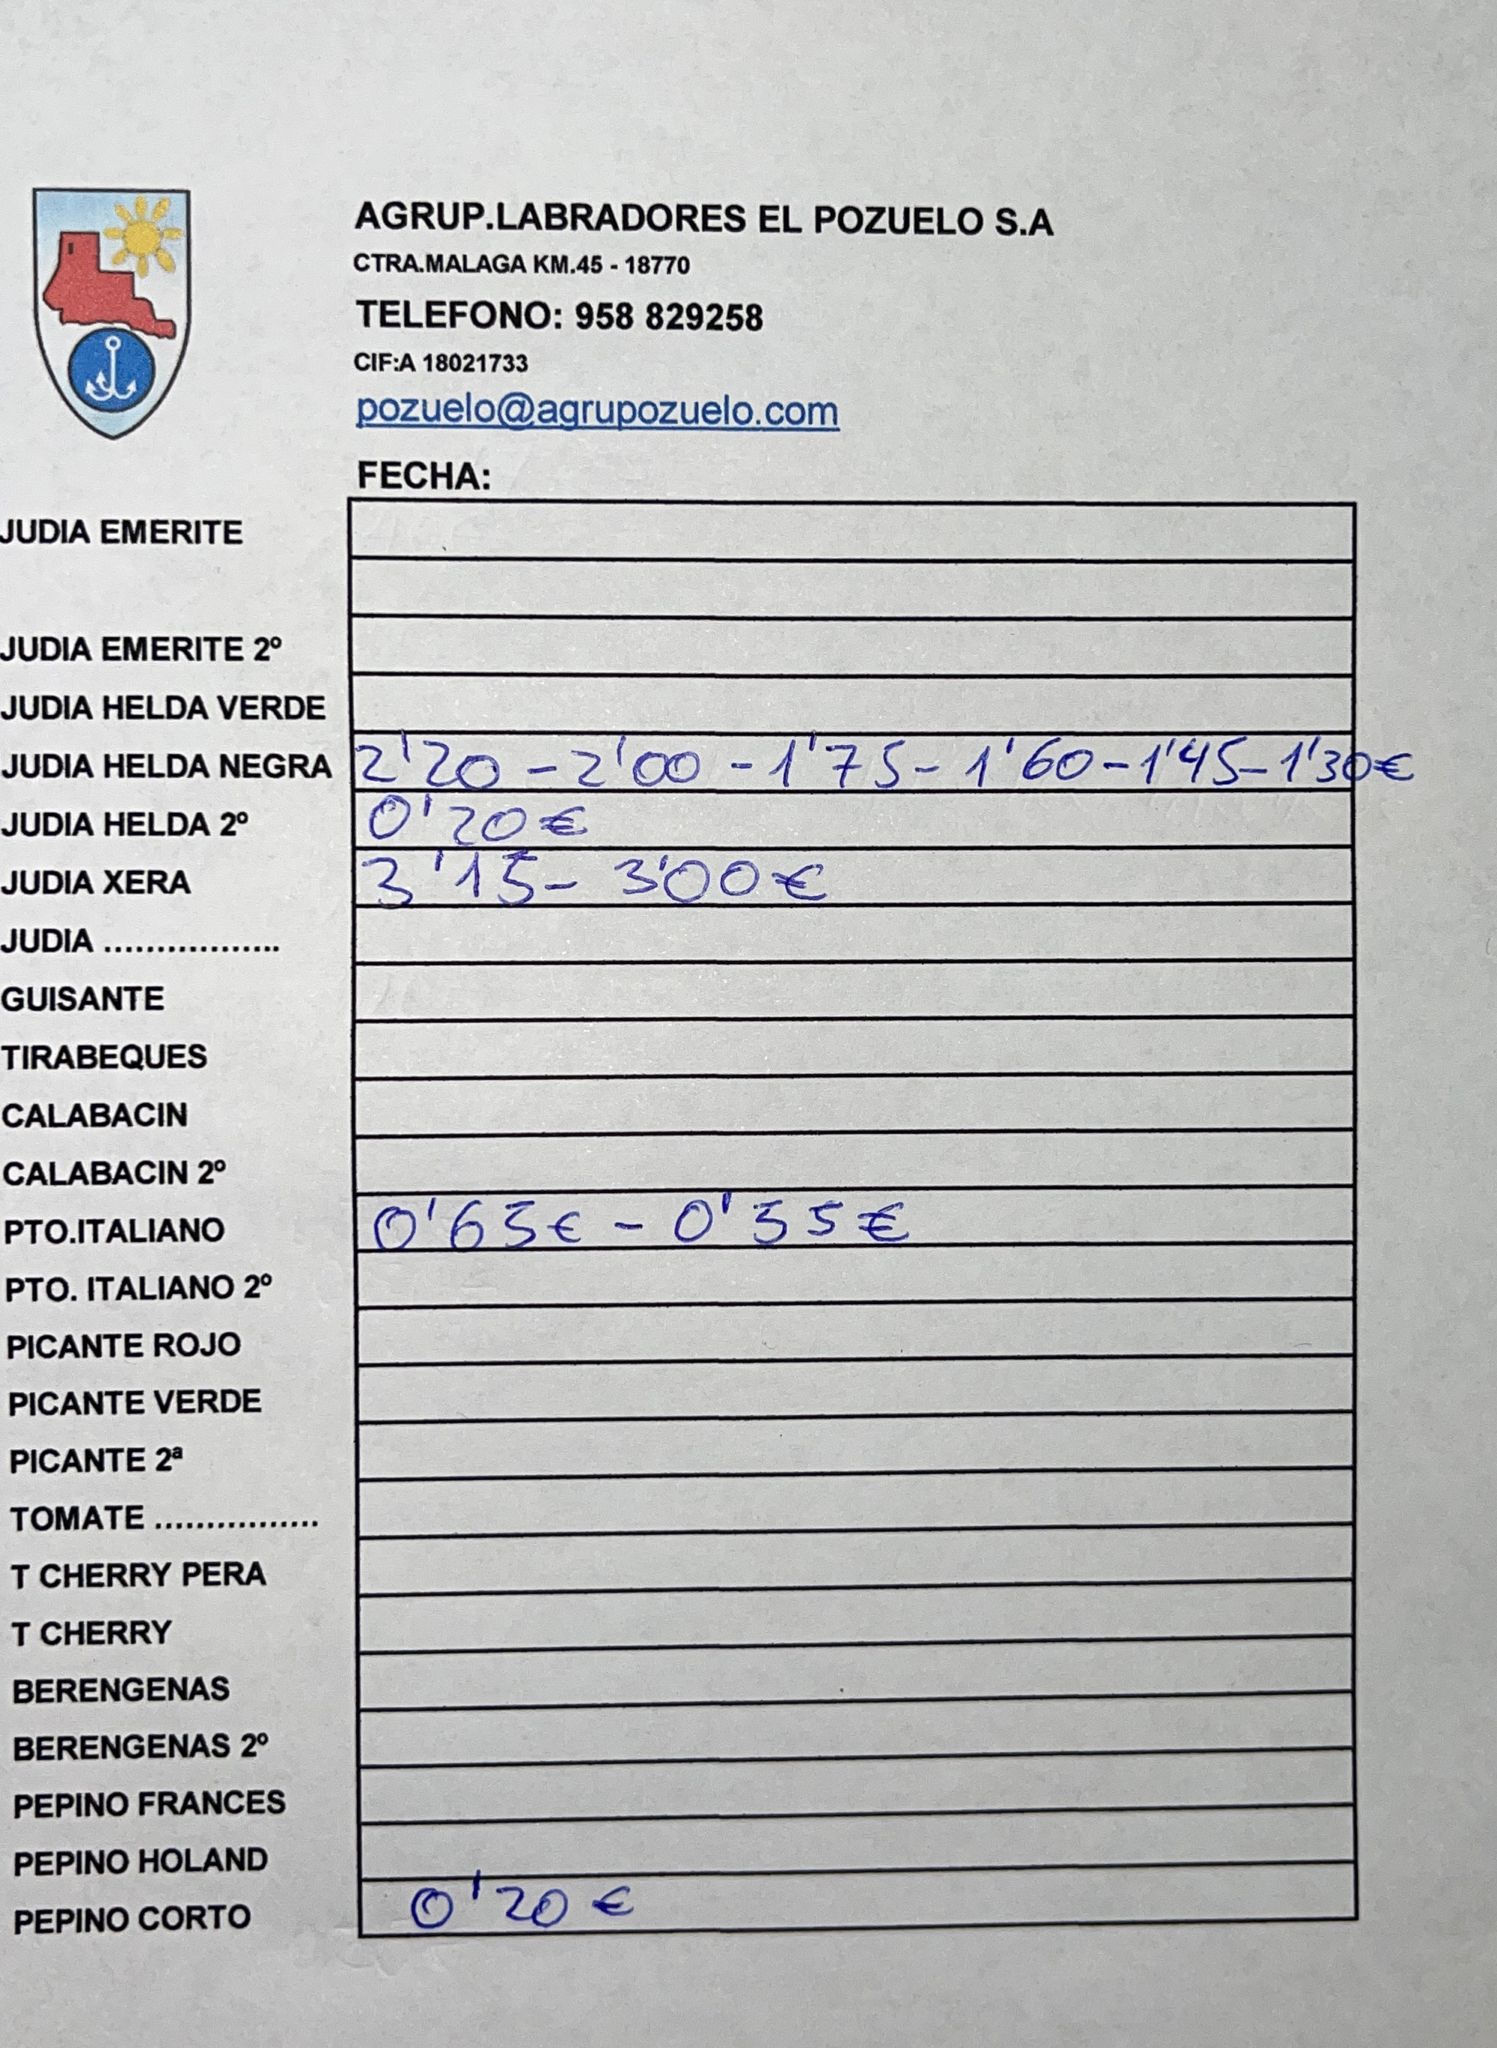 AGRUP.LABRADORES EL POZUELO S.A
CTRA.MALAGA KM.45 - 18770
TELEFONO: 958 829258
CIF:A 18021733
pozuelo@agrupozuelo.com
FECHA:
JUDIA EMERITE
JUDIA EMERITE 2º
JUDIA HELDA VERDE
JUDIA HELDA NEGRA 2'20 - 2'00 - 1'75 - 1'60 - 1'45 - 1'30€
JUDIA HELDA 2º 0'20€
JUDIA XERA 3'15 - 3'00€
JUDIA .................
GUISANTE
TIRABEQUES
CALABACIN
CALABACIN 2º
PTO.ITALIANO 0'65€ - 0'55€
PTO. ITALIANO 2º
PICANTE ROJO
PICANTE VERDE
PICANTE 2ª
TOMATE ................
T CHERRY PERA
T CHERRY
BERENGENAS
BERENGENAS 2º
PEPINO FRANCES
PEPINO HOLAND
PEPINO CORTO 0'20€